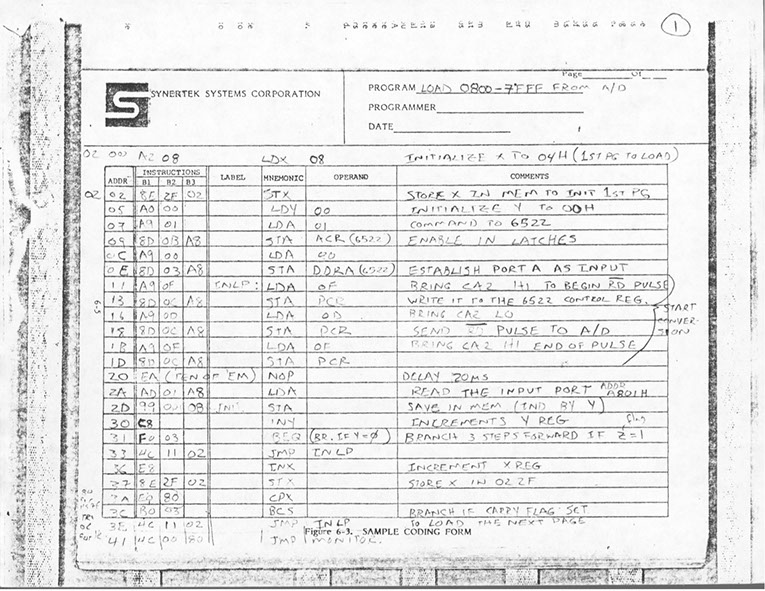 1
Page Of
SYNERTEK SYSTEMS CORPORATION
PROGRAM LOAD 0800-7FFF FROM A/D
PROGRAMMER
DATE
02 00 A2 08 LDX 08 INITIALIZE X TO 04H (1ST PG TO LOAD)
ADDR INSTRUCTIONS B1 B2 B3 LABEL MNEMONIC OPERAND COMMENTS
02 02 8E 2F 02 STX STORE X IN MEM TO INIT 1ST PG
05 A0 00 LDY 00 INITIALIZE Y TO 00H
07 A9 01 LDA 01 COMMAND TO 6522
09 8D 0B A8 STA ACR (6522) ENABLE IN LATCHES
0C A9 00 LDA 00
0E 8D 03 A8 STA DDRA (6522) ESTABLISH PORT A AS INPUT
11 A9 0F INLP: LDA 0F BRING CA2 HI TO BEGIN RD PULSE
13 8D 0C A8 STA PCR WRITE IT TO THE 6522 CONTROL REG.
16 A9 0D LDA 0D BRING CA2 LO
START CONVERSION
18 8D 0C A8 STA PCR SEND RD PULSE TO A/D
1B A9 0F LDA 0F BRING CA2 HI END OF PULSE
1D 8D 0C A8 STA PCR
20 EA (TEN OF 'EM) NOP DELAY 20MS
2A AD 01 A8 LDA READ THE INPUT PORT ADDR A801H
2D 99 00 08 INIT STA SAVE IN MEM (IND BY Y)
30 C8 INY INCREMENTS Y REG
31 F0 03 BEQ (BR. IF Y=0) BRANCH 3 STEPS FORWARD IF Z=1 flag
33 4C 11 02 JMP INLP
36 E8 INX INCREMENT X REG
37 8E 2F 02 STX STORE X IN 022F
3A E0 80 CPX
3C B0 03 BCS BRANCH IF CARRY FLAG SET
3E 4C 11 02 JMP INLP TO LOAD THE NEXT PAGE
Figure 6-3. SAMPLE CODING FORM
41 4C 00 80 JMP MONITOR.